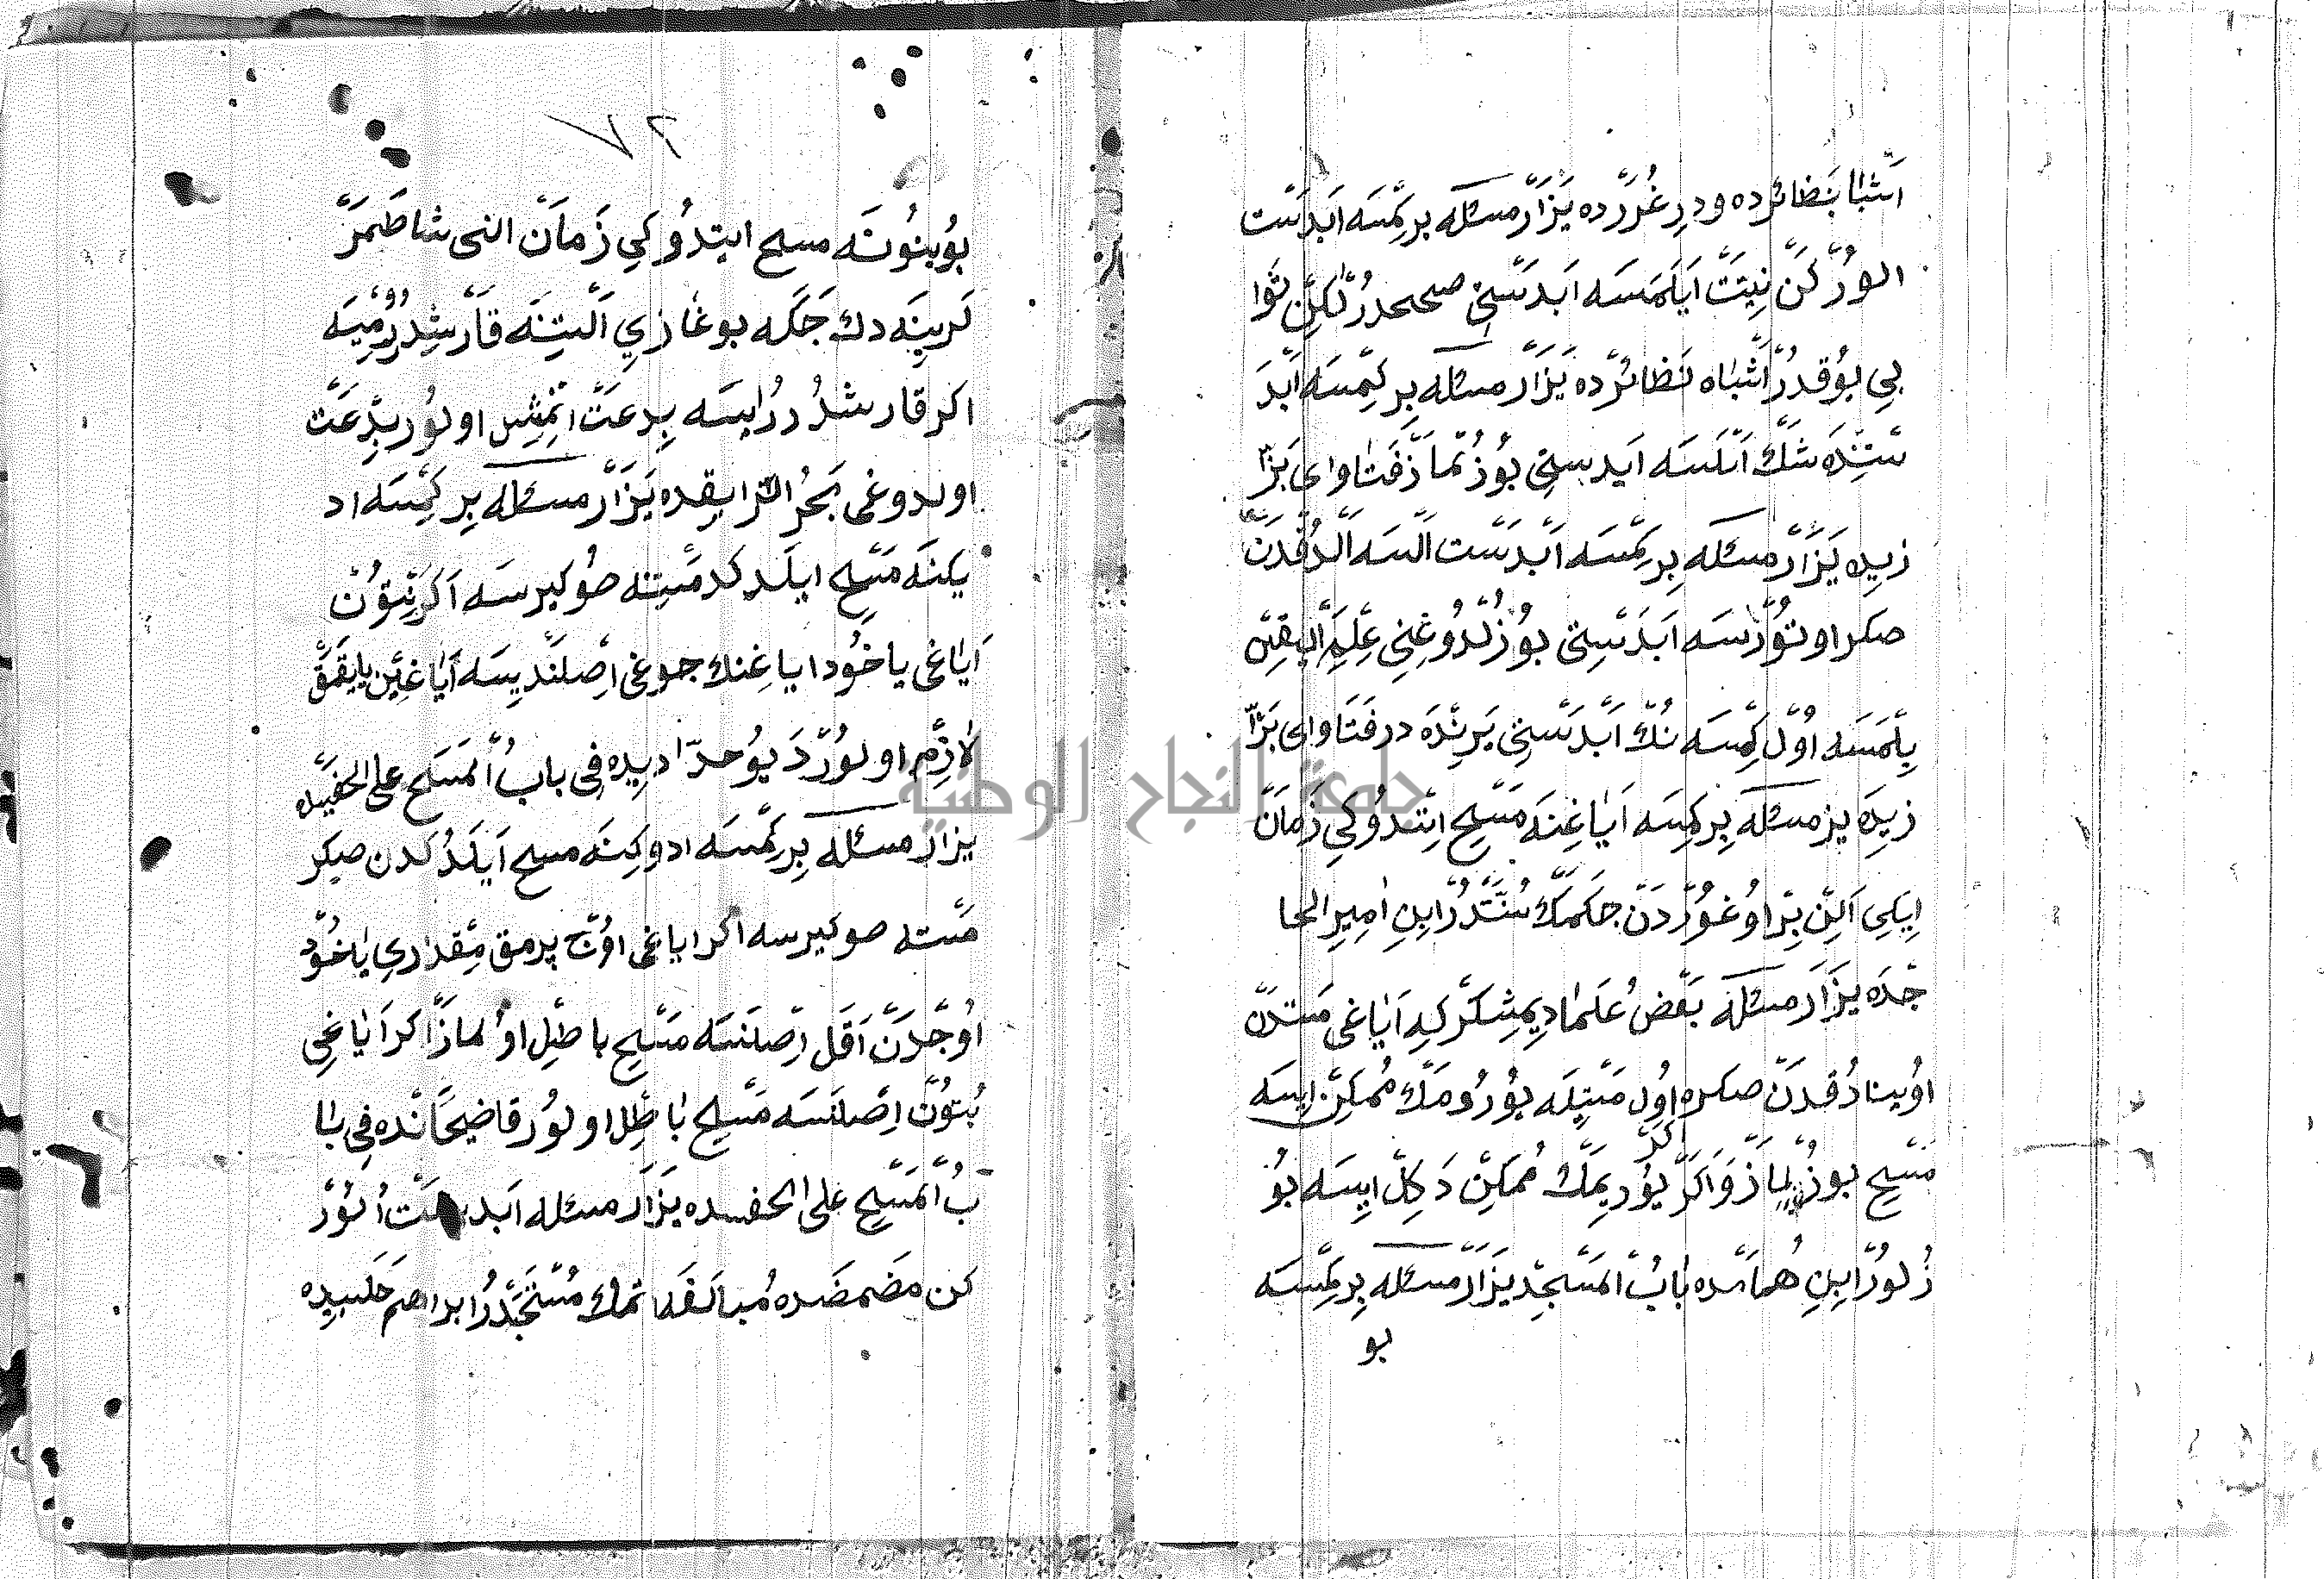 اشبا نظائرده ودرغررده يزار مسئله بر كمسه ابدست
الور كن نيت ايلمسه ابدستى صحيحدر لكن ثوا
بى يوقدر اشباه نظائرده يزار مسئله بر كمسه ابد
ستنده شك اتسه ابدستى بوزلماز فتاواى بزا
زيده يزار مسئله بر كمسه ابدست السه الدقدن
صكره اوتورسه ابدستى بوزلدوغنى علم اليقين
بلمسه اول كمسه ننك ابدستى يرنده در فتاواى بزا
زيده يزر مسئله بر كمسه اياغنه مسح اتدوكى زمان
ايكى الين بر اوغوردن جكمك سنتدر ابن امير الحا
جده يزار مسئله بعض علما ديمشلركه اياغى مستدن
اوينادقدن صكره اول مستله يورومك ممكن ايسه
مسح بوزلماز واكر يوريمك ممكن دكل ايسه بو
زلور ابن همامده باب المسح ده يزار مسئله بر كمسه
بو
٧٢
بوينونه مسح ايتدوكى زمان النى شاطمر
لرينه دك جكه بوغازى التنه قارشدرميه
اكر قارشدررايسه بدعت اتمش اولور بدعت
اولدوغى بحر الرايقده يزار مسئله بر كمسه اد
يكنه مسح ايلدكد مستنه صو كيرسه اكر بتون
اياغى ياخود اياغنك جوغى اصلنديسه اياغين يايقمق
لازم اولور ديو حدادیده فى باب المسح على الخفينده
يزار مسئله بر كمسه ادوكنه مسح ايلدكدن صكر
مسته صو كيرسه اكر اياغى اوج پرمق مقدارى ياخود
اوجدن اقل اصلنسه مسح باطل اولماز اكر اياغى
بتون اصلنسه مسح باطل اولور قاضيخانده فى با
ب المسح على الخفينده يزار مسئله ابدست الور
كن مضمضده مبالغه اتمك مستحبدر ابراهيم حلبيده